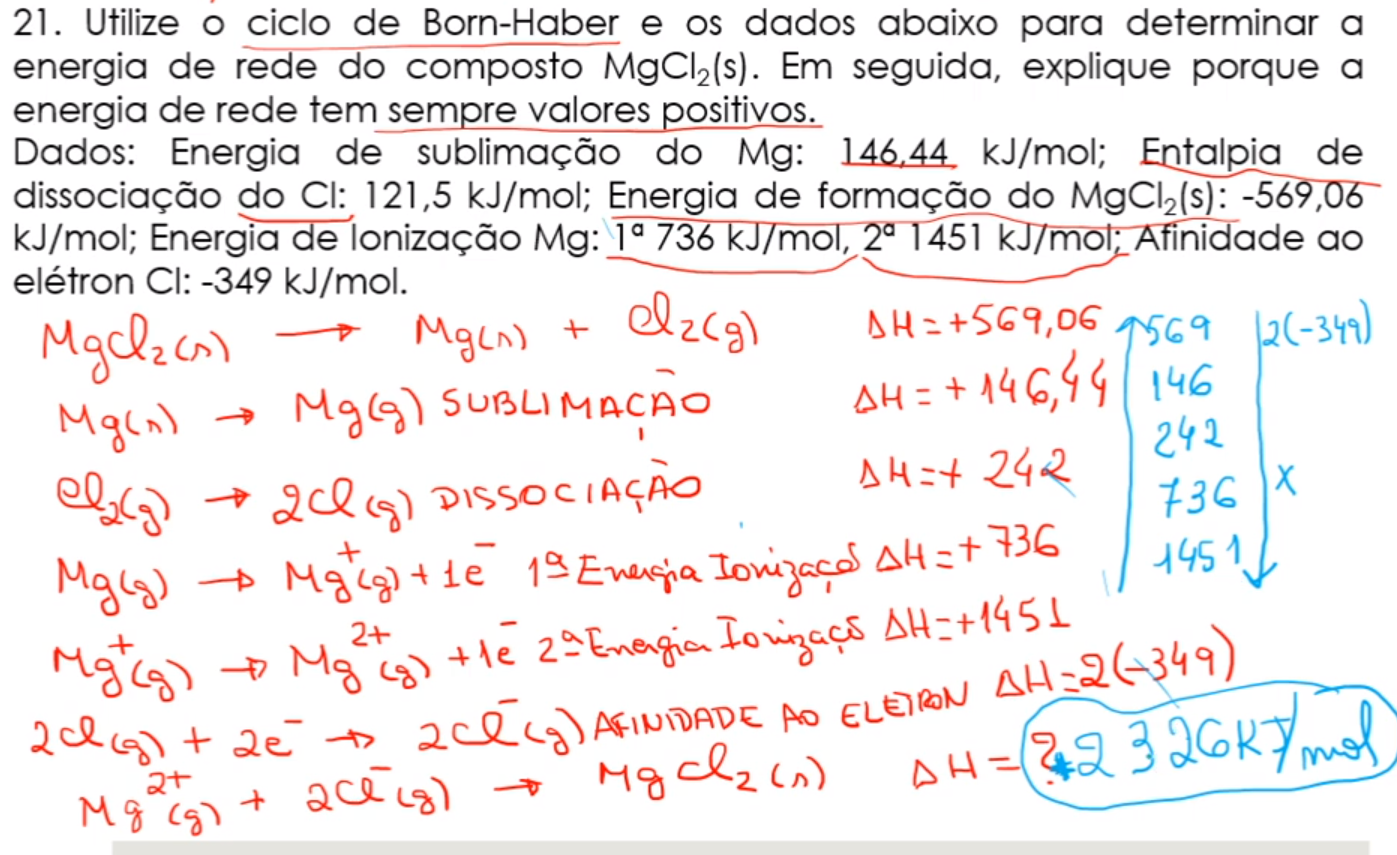 21. Utilize o ciclo de Born-Haber e os dados abaixo para determinar a
energia de rede do composto MgCl₂(s). Em seguida, explique porque a
energia de rede tem sempre valores positivos.
Dados: Energia de sublimação do Mg: 146,44 kJ/mol; Entalpia de
dissociação do Cl: 121,5 kJ/mol; Energia de formação do MgCl₂(s): -569,06
kJ/mol; Energia de Ionização Mg: 1ª 736 kJ/mol, 2ª 1451 kJ/mol; Afinidade ao
elétron Cl: -349 kJ/mol.
MgCl₂(s) → Mg(s) + Cl₂(g) ΔH = +569,06
Mg(s) → Mg(g) SUBLIMAÇÃO ΔH = +146,44
Cl₂(g) → 2Cl(g) DISSOCIAÇÃO ΔH = + 242
Mg(g) → Mg⁺(g) + 1e⁻ 1ª Energia Ionizaçõ ΔH = +736
Mg⁺(g) → Mg²⁺(g) + 1e⁻ 2ª Energia Ionizaçõ ΔH = +1451
2Cl(g) + 2e⁻ → 2Cl⁻(g) AFINIDADE AO ELETRON ΔH = 2(-349)
Mg²⁺(g) + 2Cl⁻(g) → MgCl₂(s) ΔH = ? 2326 KJ/mol
569
146
242
736
1451
2(-349)
X